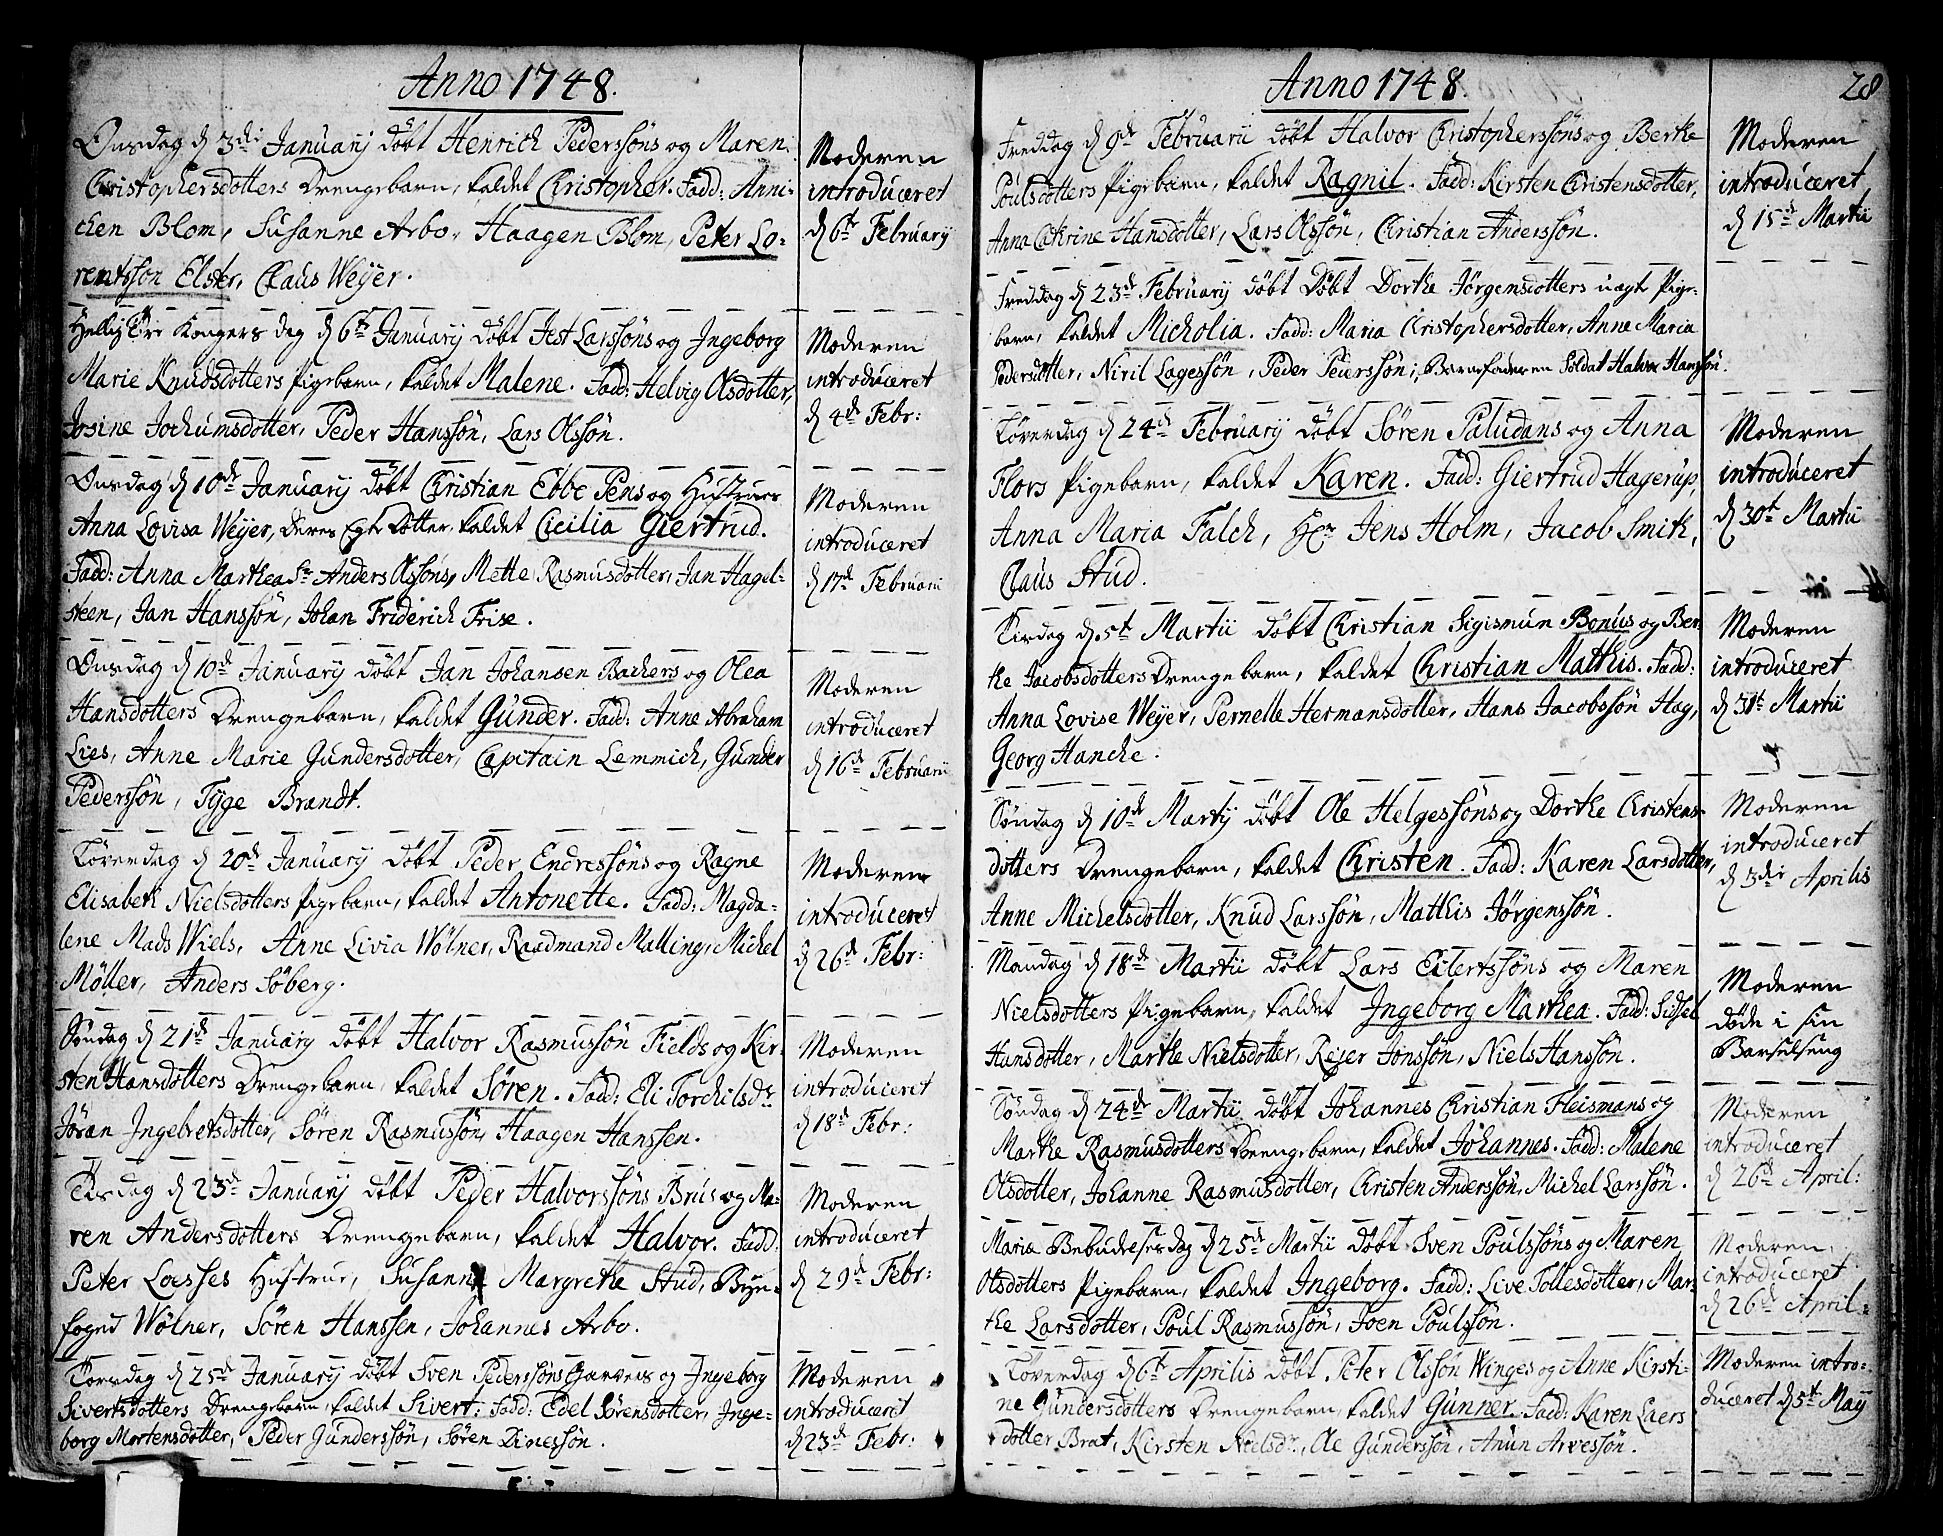 Anno 1748.
Onsdag d 3di January döbt Henrich Pederssöns og Maren
Christophersdotters Drengebarn, kaldet Christopher. Fadd: Anni-
chen Blom, Susanne Arbo, Haagen Blom, Peter Lo-
rentsson Elster, Claus Weyer.
Moderen
introduceret
d 6te February
Hellig Tre Kongers dag d 6te January döbt Jest Larssöns og Ingeborg
Marie Knudsdotters Pigebarn, kaldet Malene. Fadd: Helvig Olsdotter,
Josine Jochumsdotter, Peder Hanssön, Lars Olssön.
Moderen
introduceret
d 4de Febr:
Onsdag d 10de January döbt Christian Ebbe Pens og Hustrues
Anna Lovisa Weyer, deres Egte Dotter, kaldet Cicilia Giertrud.
Fadd: Anna Marthea Sr Anders Olssöns, Mette Rasmusdotter, Jan Hagel-
steen, Jan Hanssön, Johan Friderich Frise.
Moderen
introduceret
d 17de Februarii
Onsdag d 10de January döbt Jan Johansen Bachers og Olea
Hansdotters Drengebarn, kaldet Gunder. Fadd: Anne Abraham
Lies, Anne Marie Gundersdotter, Capitain Lemmich, Gunder
Pederssön, Tyge Brandt.
Moderen
introduceret
d 16de Februarii
Löverdag d 20de January döbt Peder Endressöns og Ragne
Elisabeth Nielsdotters Pigebarn, kaldet Antonette. Fadd: Magda-
lene Mads Wiels, Anne Livia Wölner, Raadmand Malling, Michel
Möller, Anders Söberg.
Moderen
introduceret
d 26de Febr:
Söndag d 21de January döbt Halvor Rasmussön Fields og Kir-
sten Hansdotters Drengebarn, kaldet Sören. Fadd: Eli Torchilsdr
Jöran Ingebretsdotter, Sören Rasmussön, Haagen Hanssen.
Moderen
introduceret
d 18de Febr:
Tirsdag d 23de January döbt Peder Halvorssöns Brus og Ma-
ren Andersdotters Drengebarn, kaldet Halvor. Fadd:
Peter Loesses Hustrue, Susanne Margrethe Stud, Bye-
foged Wölner, Sören Hanssen, Johannes Arbo.
Moderen
introduceret
d 29de Febr:
Torsdag d 25de January döbt Sven Pederssöns og Ingeborg
Sivertsdotters Drengebarn, kaldet Sivert. Fadd: Edel Sörensdotter, Inge-
borg Mortensdotter, Peder Gunderssön, Sören Dinessön.
Moderen
introduceret
d 23de Febr:
28
Anno 1748.
Freddag d 9de Februarii döbt Halvor Christopherssöns og Berthe
Poulsdotters Pigebarn, kaldet Ragnil. Fadd: Kirsten Christensdotter,
Anna Cathrine Hansdotter, Lars Olssön, Christian Anderssön.
Moderen
introduceret
d 15de Martii
Freddag d 23de February döbt Döbt Dorthe Jörgensdotters uegte Pige-
barn, kaldet Micholia. Fadd: Maria Christophersdotter, Anne Maria
Pedersdotter, Niril Lagessön, Peder Peierssön; Barnefaderen Soldat Halvor Hanssön.
Löverdag d 24de February döbt Sören Paludans og Anna
Flors Pigebarn, kaldet Karen. Fadd: Giertrud Hagerup,
Anna Maria Falch, Hr Jens Holm, Jacob Smith,
Claus Stud.
Moderen
introduceret
d 30te Martii
Tirsdag d 5te Martii döbt Christian Sigismun Bonus og Ber-
the Jacobsdotters Drengebarn, kaldet Christian Matthis. Fadd:
Anna Lovise Weyer, Pernelle Hermansdotter, Hans Jacobssön Hag,
Georg Hancke.
Moderen
introduceret
d 31te Martii
Söndag d 10de Martij döbt Ole Helgessöns og Dorthe Christens-
dotters Drengebarn, kaldet Christen. Fadd: Karen Larsdotter,
Anne Michelsdotter, Knud Larssön, Matthis Jörgenssön.
Moderen
introduceret
d 3di Aprilis
Mandag d 18de Martii döbt Lars Eilertssöns og Maren
Nielsdotters Pigebarn, kaldet Ingeborg Marthea. Fadd: Sidsel
Hansdotter, Marthe Nielsdotter, Rejer Jonssön, Niels Hanssön.
Moderen
döde i sin
Barselseng
Söndag d 24de Martii döbt Johannes Christian Fleismans og
Marthe Rasmusdotters Drengebarn, kaldet Johannes. Fadd: Malene
Olsdotter, Johanne Rasmusdotter, Christen Anderssön, Michel Larssön.
Moderen
introduceret
d 26de April:
Mariæ Bebudelses dag d 25de Martii döbt Sven Poulssöns og Maren
Olsdotters Pigebarn, kaldet Ingeborg. Fadd: Live Tollesdotter, Mar-
the Larsdotter, Poul Rasmussön, Joen Poulssön.
Moderen
introduceret
d 26de April:
Löverdag d 6te Aprilis döbt Peter Olssön Winges og Anne Kirsti-
ne Gundersdotters Drengebarn, kaldet Gunner. Fadd: Karen Laers
dotter Brat, Kirsten Nielsdr, Ole Gunderssön, Anun Arvessön.
Moderen intro-
duceret d 5te May